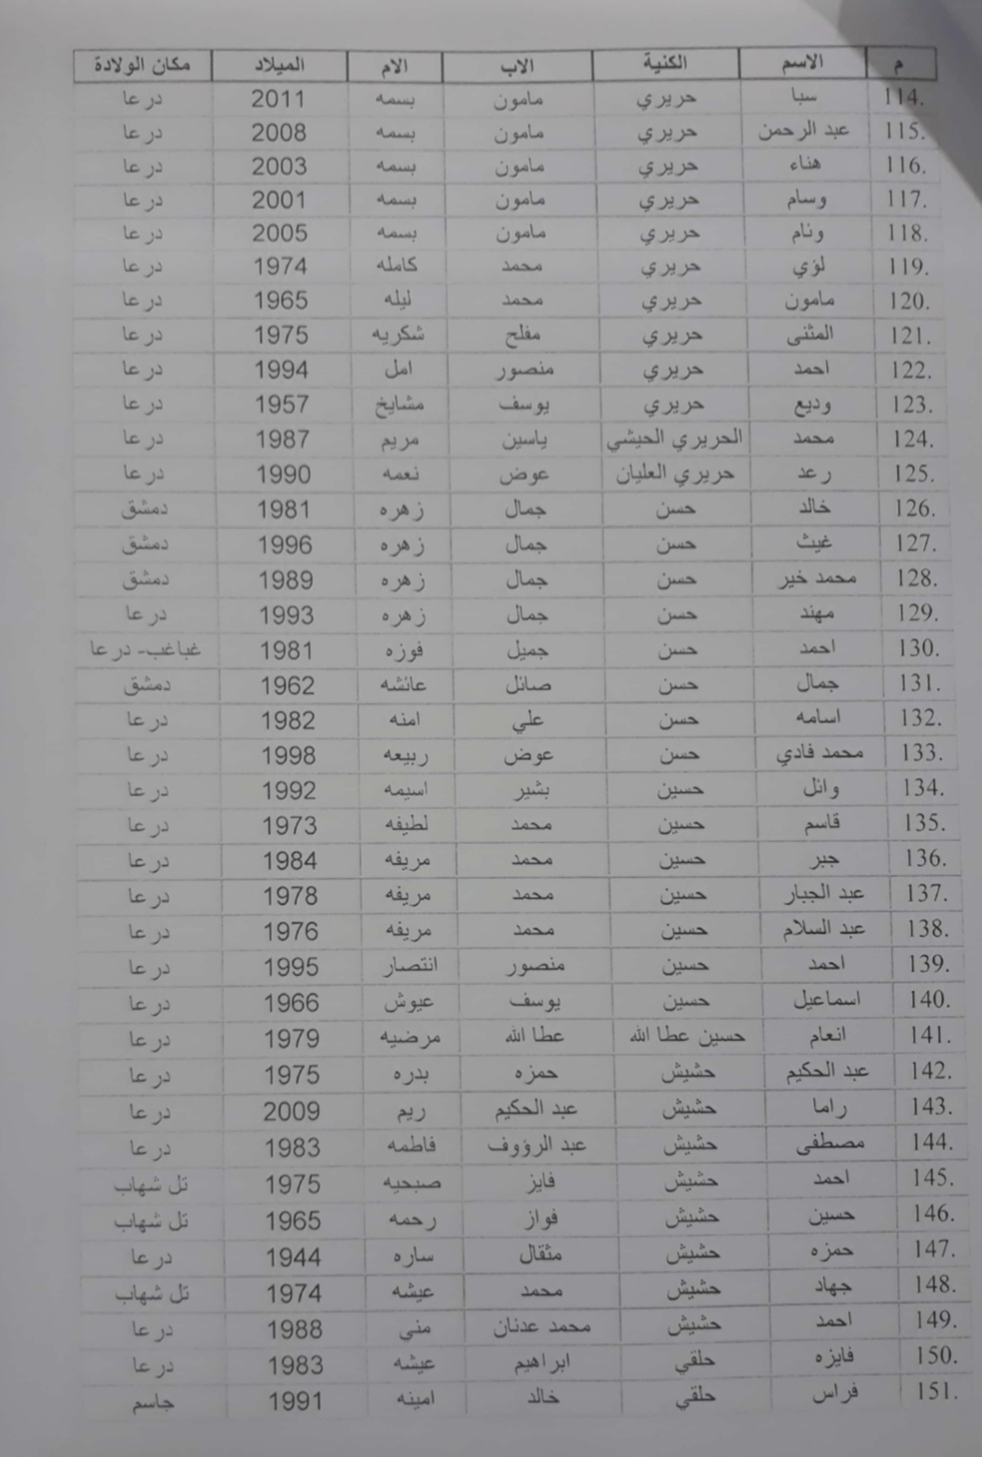 م الاسم الكنية الاب الام الميلاد مكان الولادة
114. سبا حريري مامون بسمه 2011 درعا
115. عبد الرحمن حريري مامون بسمه 2008 درعا
116. هناء حريري مامون بسمه 2003 درعا
117. وسام حريري مامون بسمه 2001 درعا
118. وئام حريري مامون بسمه 2005 درعا
119. لؤي حريري محمد كامله 1974 درعا
120. مامون حريري محمد ليله 1965 درعا
121. المثنى حريري مفلح شكريه 1975 درعا
122. احمد حريري منصور امل 1994 درعا
123. وديع حريري يوسف مشايخ 1957 درعا
124. محمد الحريري الحيشي ياسين مريم 1987 درعا
125. رعد حريري العليان عوض نعمه 1990 درعا
126. خالد حسن جمال زهره 1981 دمشق
127. غيث حسن جمال زهره 1996 دمشق
128. محمد خير حسن جمال زهره 1989 دمشق
129. مهند حسن جمال زهره 1993 درعا
130. احمد حسن جميل فوزه 1981 غباغب- درعا
131. جمال حسن صائل عائشه 1962 دمشق
132. اسامه حسن علي امنه 1982 درعا
133. محمد فادي حسن عوض ربيعه 1998 درعا
134. وائل حسين بشير اسيمه 1992 درعا
135. قاسم حسين محمد لطيفه 1973 درعا
136. جبر حسين محمد مريفه 1984 درعا
137. عبد الجبار حسين محمد مريفه 1978 درعا
138. عبد السلام حسين محمد مريفه 1976 درعا
139. احمد حسين منصور انتصار 1995 درعا
140. اسماعيل حسين يوسف عيوش 1966 درعا
141. انعام حسين عطا الله عطا الله مرضيه 1979 درعا
142. عبد الحكيم حشيش حمزه بدره 1975 درعا
143. راما حشيش عبد الحكيم ريم 2009 درعا
144. مصطفى حشيش عبد الرؤوف فاطمه 1983 درعا
145. احمد حشيش فايز صبحيه 1975 تل شهاب
146. حسين حشيش فواز رحمه 1965 تل شهاب
147. حمزه حشيش مثقال ساره 1944 درعا
148. جهاد حشيش محمد عيشه 1974 تل شهاب
149. احمد حشيش محمد عدنان مني 1988 درعا
150. فايزه حلقي ابراهيم عيشه 1983 درعا
151. فراس حلقي خالد امينه 1991 جاسم